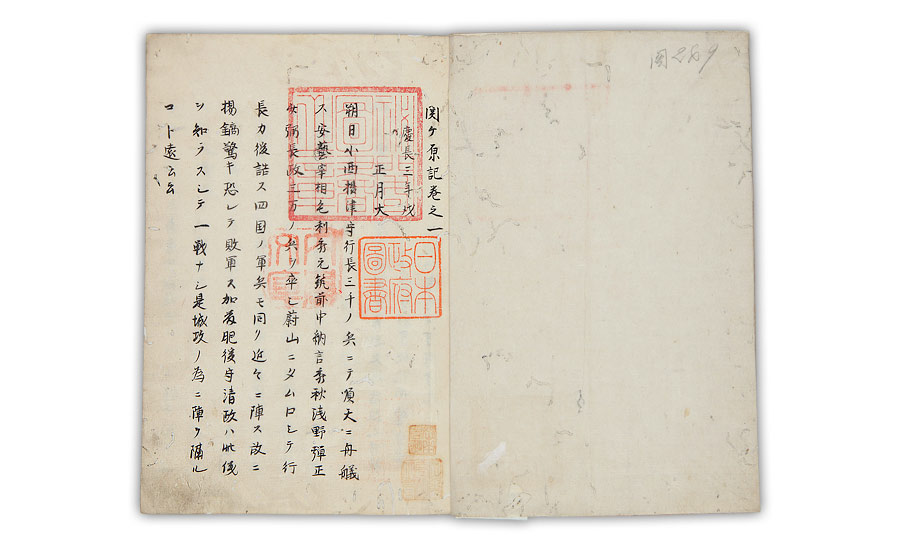 関ヶ原記巻之一
慶長三年戊
正月大
朔日小西摂津守行長三千ノ兵ニテ順天ニ舟艤
ス安藝宰相毛利秀元筑前中納言秀秋浅野弾正
少弼長政三万ノ兵ヲ卒シ蔚山ニタムロシテ行
長カ後詰ス四国ノ軍兵モ同ク近々ニ陣ス故ニ
楊鎬驚キ恐レテ敗軍ス加藤肥後守清政ハ此後
シ知ラスシテ一戦ナシ是城攻ノ為ニ陣ヲ隔ル
コト遠云云
日本
政府
圖書
図289